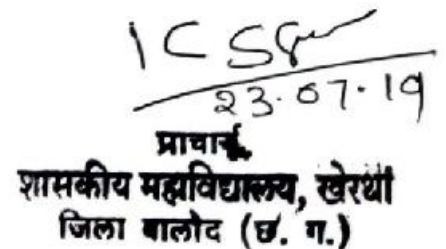 23.07.19
प्राचार्य
शासकीय महाविद्यालय, खेरथा
जिला बालोद (छ. ग.)